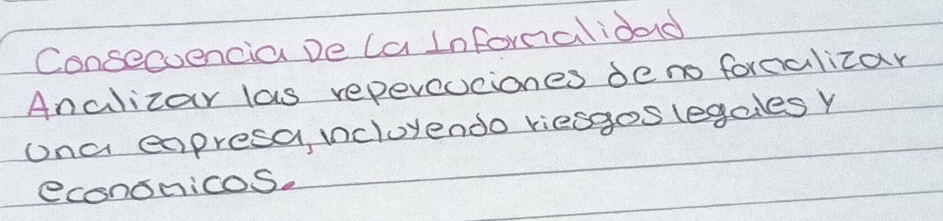 Consecuencia De La Informalidad
Analizar las repercuciones de no formalizar
una empresa, incluyendo riesgos legales y
economicos.